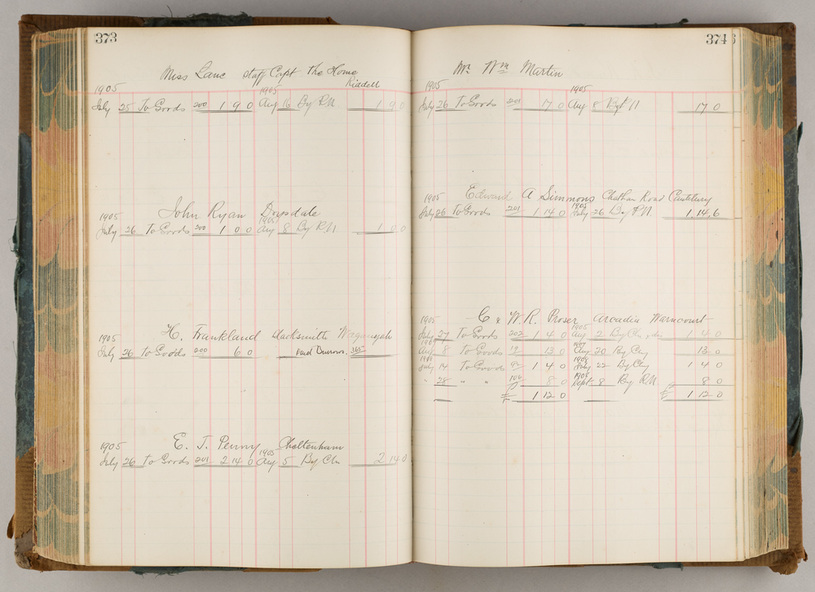 373
Miss Lane Staff Capt The Home
Riddell
1905 1905
July 25 To Goods 200 1 9 0 Aug 16 By RN 1 9 0
John Ryan Drysdale
1905 1905
July 26 To Goods 200 1 0 0 Aug 8 By RN 1 0 0
H. Frankland Blacksmith
1905
July 26 To Goods 200 6 0 365
E. J. Penny Cheltenham
1905 1905
July 26 To Goods 201 2 14 0 Aug 5 By Ch 2 14 0
374
Mr Wm Martin
1905 1905
July 26 To Goods 201 17 0 Aug 8 17 0
Edward A Simmons Chatham Road Canterbury
1905 1905
July 26 To Goods 201 1 14 0 July 26 By RN 1 14 6
C & W. R. Arcadia Warncourt
1905 1905
July 27 To Goods 202 1 4 0 Aug 2 By Ch 1 4 0
Aug 8 To Goods 13 0 Aug 20 By Chq 13 0
July 14 To Goods 1 4 0 22 By Chq 1 4 0
" 28 " " 8 0 Sept 8 By RN 8 0
£ 1 12 0 £ 1 12 0